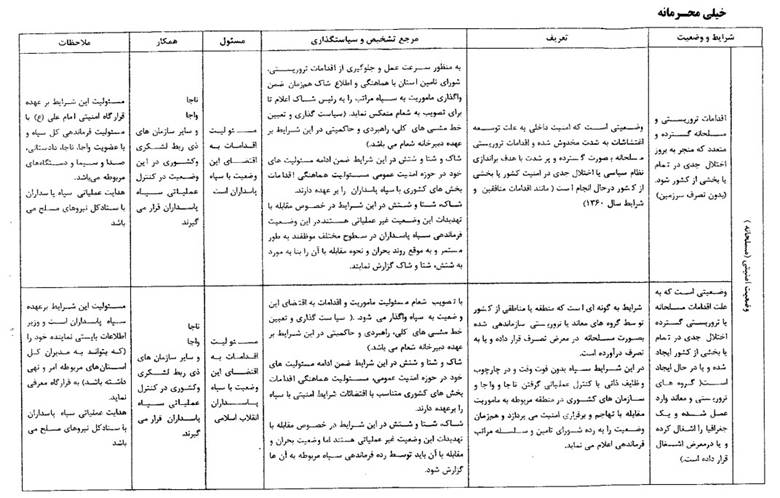 خیلی محرمانه
شرایط و وضعیت
تعریف
مرجع تشخیص و سیاستگذاری
مسئول
همکار
ملاحظات
وضعیت امنیتی (مسلحانه)
اقدامات تروریستی و
مسلحانه گسترده و
متعدد که منجر به بروز
اختلال جدی در تمام
یا بخشی از کشور شود.
(بدون تصرف سرزمین)
وضعیتی است که امنیت داخلی به علت توسعه
اغتشاشات به شدت مخدوش شده و اقدامات تروریستی
مسلحانه بصورت گسترده و پر شدت با هدف براندازی
نظام سیاسی یا اختلال جدی در امنیت کشور یا بخشی
از کشور درحال انجام است (مانند اقدامات منافقین و
شرایط سال ۱۳۶۰)
به منظور سرعت عمل و جلوگیری از اقدامات تروریستی،
شورای تامین استان با هماهنگی و اطلاع شاک همزمان ضمن
واگذاری ماموریت به سپاه مراتب را به رئیس شاک اعلام تا
برای تصویب به شعام منعکس نماید. (سیاست گذاری و تعیین
خط مشی های کلی، راهبردی و حاکمیتی در این شرایط بر
عهده دبیرخانه شعام می باشد.)
شاک و شتا و شتش در این شرایط ضمن ادامه مسئولیت های
خود در حوزه امنیت عمومی مسئولیت هماهنگی اقدامات
بخش های کشوری با سپاه پاسداران را بر عهده دارند.
شاک، شتا و شتش در این شرایط در خصوص مقابله با
تهدیدات این وضعیت غیر عملیاتی هستند در این وضعیت
فرماندهی سپاه پاسداران در سطوح مختلف موظفند به طور
مستمر و به موقع روند بحران و نحوه مقابله با آن را بنا به مورد
به شتش، شتا و شاک گزارش نمایند.
مسئولیت
اقدامات به
اقتضای این
وضعیت با سپاه
پاسداران است
ناجا
واجا
و سایر سازمان های
ذی ربط لشکری
وکشوری در این
وضعیت در کنترل
عملیاتی سپاه
پاسداران قرار می
گیرند
مسئولیت این شرایط بر عهده
قرارگاه امنیتی امام علی (ع) با
مسئولیت فرماندهی کل سپاه و
با عضویت واجا، ناجا، دادستانی،
صدا و سیما و دستگاههای
مربوطه می‌باشد.
هدایت عملیاتی سپاه پاسداران
با ستادکل نیروهای مسلح می
باشد
وضعیتی است که به
علت اقدامات مسلحانه
یا تروریستی گسترده
اختلال جدی در تمام
یا بخشی از کشور ایجاد
شده و یا در حال ایجاد
است( گروه های
تروریستی و معاند وارد
عمل شده و یک
جغرافیا را اشغال کرده
و یا درمعرض اشغال
قرار داده است.)
شرایط به گونه ای است که منطقه یا مناطقی از کشور
توسط گروه های معاند یا تروریستی سازماندهی شده
بصورت مسلحانه در معرض تصرف قرار داده و یا به
تصرف درآورده است.
در این شرایط سپاه بدون فوت وقت و در چارچوب
وظایف ذاتی با کنترل عملیاتی گرفتن ناجا و واجا و
سازمان های کشوری در منطقه مربوطه به ماموریت
مقابله با تهاجم و برقراری امنیت می پردازد و همزمان
وضعیت را به رده شورای تامین و سلسله مراتب
فرماندهی اعلام می نماید.
با تصویب شعام مسئولیت ماموریت و اقدامات به اقتضای این
وضعیت به سپاه واگذار می شود. ( سیاست گذاری و تعیین
خط مشی های کلی، راهبردی و حاکمیتی در این شرایط بر
عهده دبیرخانه شعام می باشد.)
شاک و شتا و شتش در این شرایط ضمن ادامه مسئولیت های
خود در حوزه امنیت عمومی، مسئولیت هماهنگی اقدامات
بخش های کشوری متناسب با اقتضائات شرایط امنیتی با سپاه
را برعهده دارند.
شاک، شتا و شتش در این شرایط در خصوص مقابله با
تهدیدات این وضعیت غیر عملیاتی هستند اما وضعیت بحران و
مقابله با آن باید توسط رده فرماندهی سپاه مربوطه به آن ها
گزارش شود.
مسئولیت
اقدامات به
اقتضای این
وضعیت با سپاه
پاسداران
انقلاب اسلامی
ناجا
واجا
و سایر سازمان های
ذی ربط لشکری
وکشوری در کنترل
عملیاتی سپاه
پاسداران قرار می
گیرند.
مسئولیت این شرایط برعهده
سپاه پاسداران است و وزیر
اطلاعات بایستی نماینده خود را
(که بتواند به مدیران کل
استان‌های مربوطه امر و نهی
داشته باشد) به قرارگاه معرفی
نماید.
هدایت عملیاتی سپاه پاسداران
با ستادکل نیروهای مسلح می
باشد